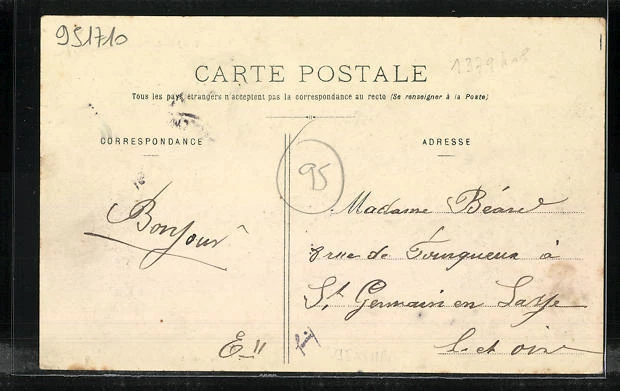 951710
CARTE POSTALE
Tous les pays étrangers n'acceptent pas la correspondance au recto (Se renseigner à la Poste)
CORRESPONDANCE
ADRESSE
95
Bonjour
Madame Béard
8 rue de Fourqueux à
St Germain en Laye
et oise
E